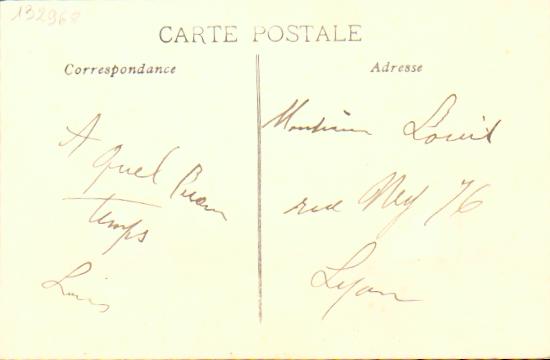 132968
CARTE POSTALE
Correspondance
A
quel beau
temps
Louis
Adresse
Monsieur Louis
rue Ney 76
Lyon